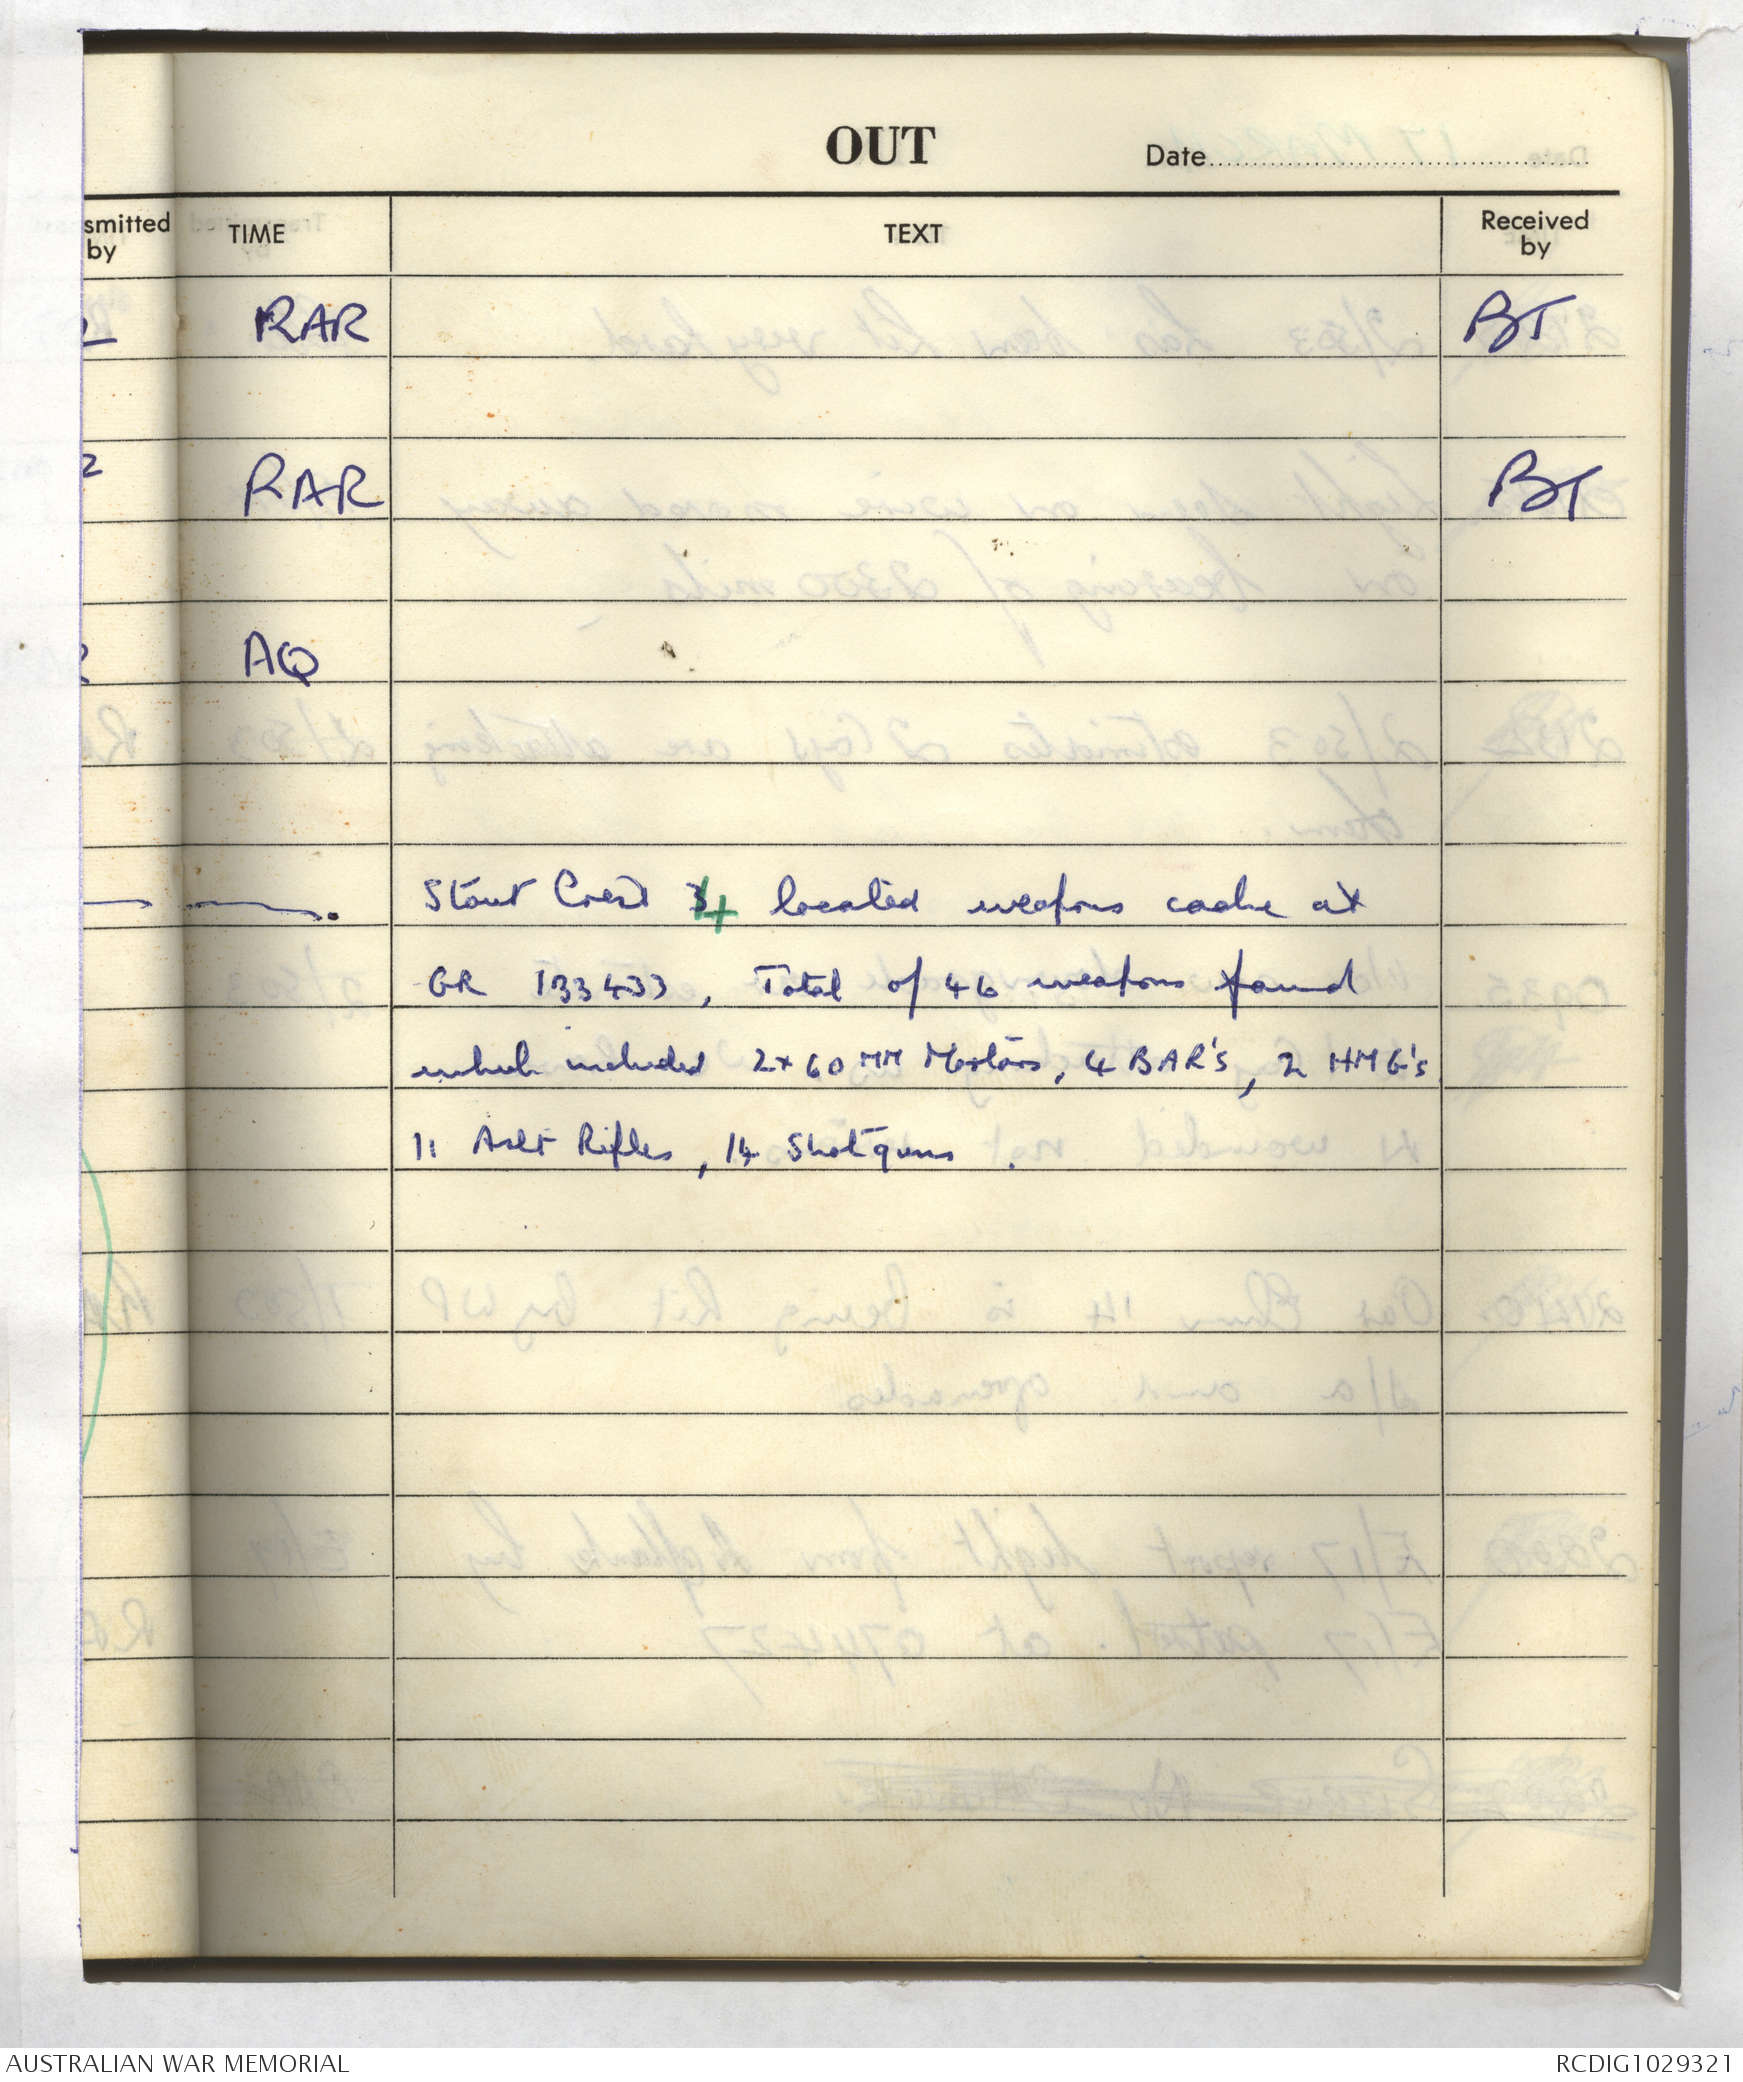 OUT
Date
smitted by
TIME
TEXT
Received by
RAR
BT
2
RAR
BT
AQ
Stout Crest 4 located weapons cache at
GR 133433, Total of 46 weapons found
which included 2x60MM Mortars, 4 BAR's, 2 HMG's
11 Aslt Rifles, 14 Shotguns.
AUSTRALIAN WAR MEMORIAL
RCDIG1029321